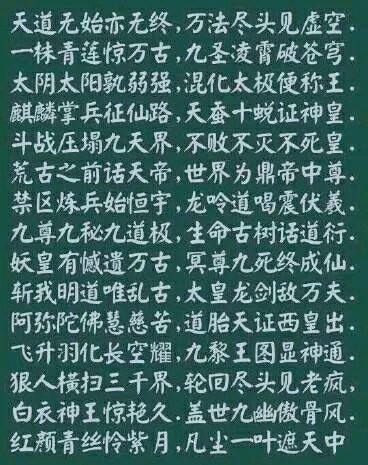 天道无始亦无终,万法尽头见虚空.
一株青莲惊万古,九圣凌霄破苍穹.
太阴太阳孰弱强,混化太极便称王.
麒麟掌兵征仙路,天蚕十蜕证神皇.
斗战压塌九天界,不败不灭不死皇.
荒古之前话天帝,世界为鼎帝中尊.
禁区炼兵始恒宇,龙吟道喝震伏羲.
九尊九秘九道极,生命古树话道衍.
妖皇有憾遗万古,冥尊九死终成仙.
斩我明道唯乱古,太皇龙剑敌万夫.
阿弥陀佛慧慈苦,道胎天证西皇出.
飞升羽化长空耀,九黎王图显神通.
狠人横扫三千界,轮回尽头见老疯,
白衣神王惊艳久.盖世九幽傲骨风.
红颜青丝怜紫月,凡尘一叶遮天中